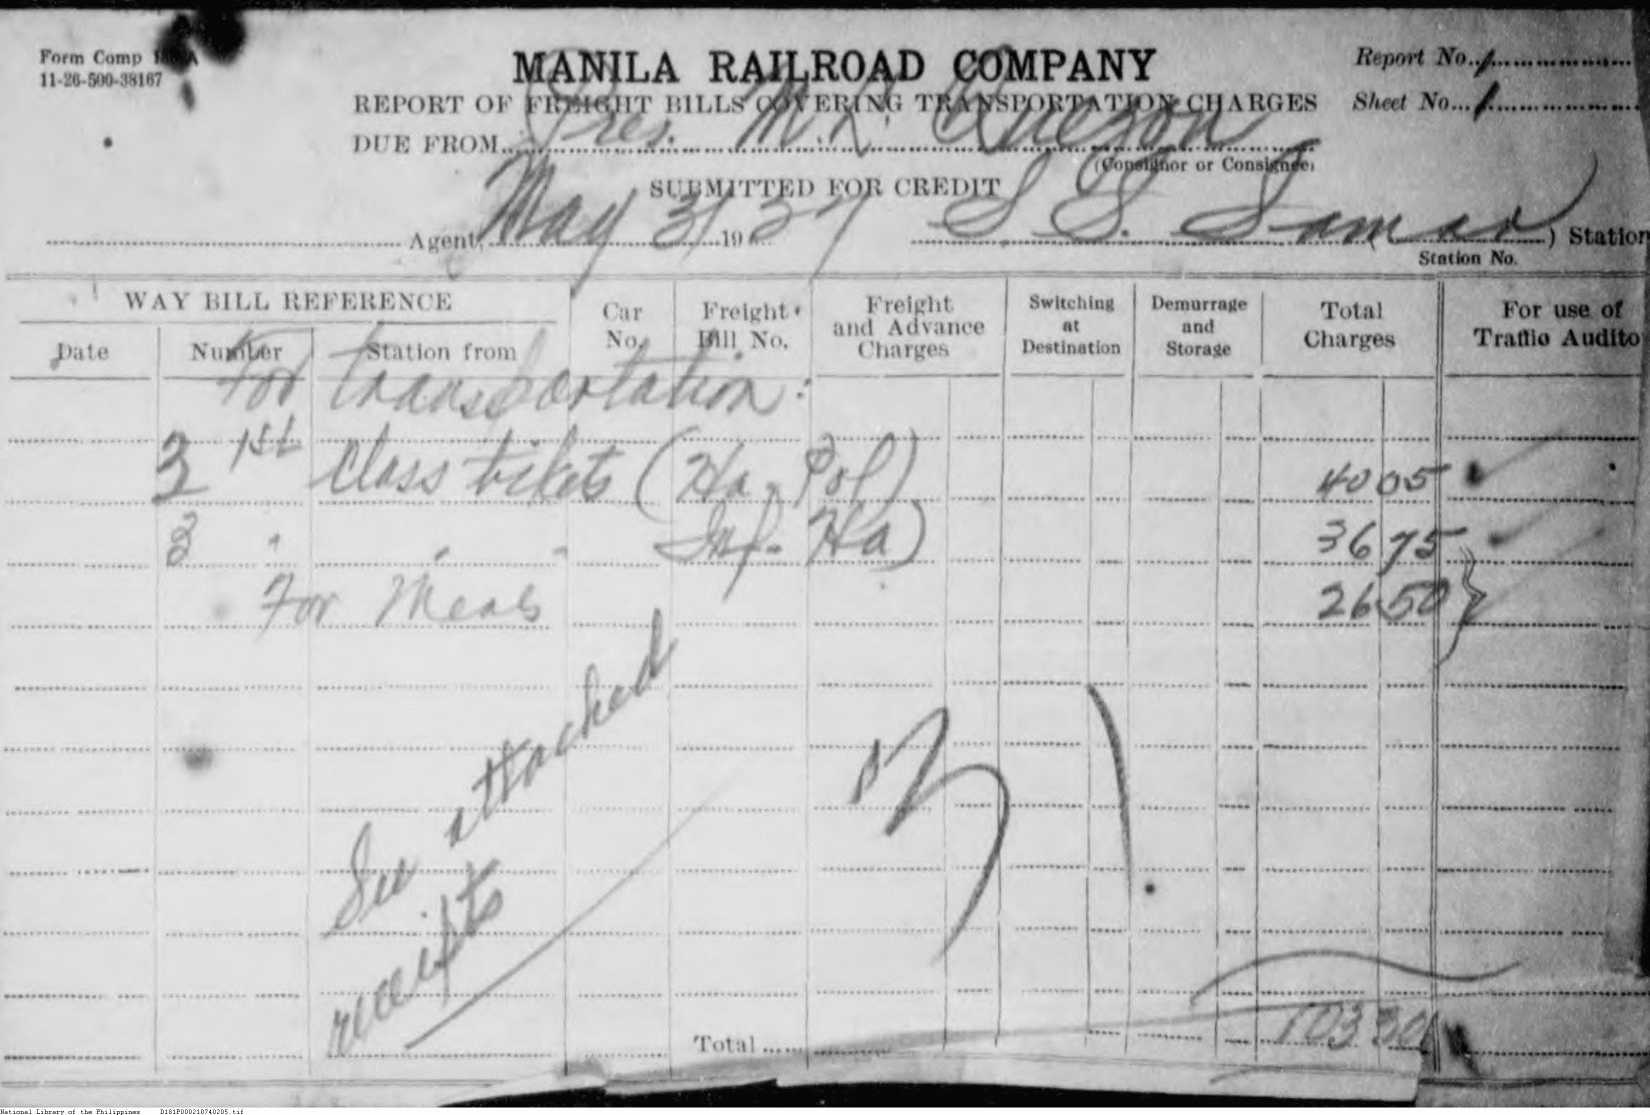 Form Comp
11-26-500-38167
MANILA RAILROAD COMPANY
Report No. 1
REPORT OF FREIGHT BILLS COVERING TRANSPORTATION CHARGES
Sheet No. 1
DUE FROM Pres. M. L. Quezon
(Consignor or Consignee)
SUBMITTED FOR CREDIT
Agent, May 31 1937 S S. Samar) Station
Station No.
WAY BILL REFERENCE
Date Number Station from
Car No.
Freight Bill No.
Freight and Advance Charges
Switching at Destination
Demurrage and Storage
Total Charges
For use of Traffic Audito
For transportation:
3 1st class tikets (Ha. Pol) 40 05
3 " " " Ha) 36 75
For Meals 26 50
See attached
receipts
Total 103 30
National Library of the Philippines D181P000210740205.tif